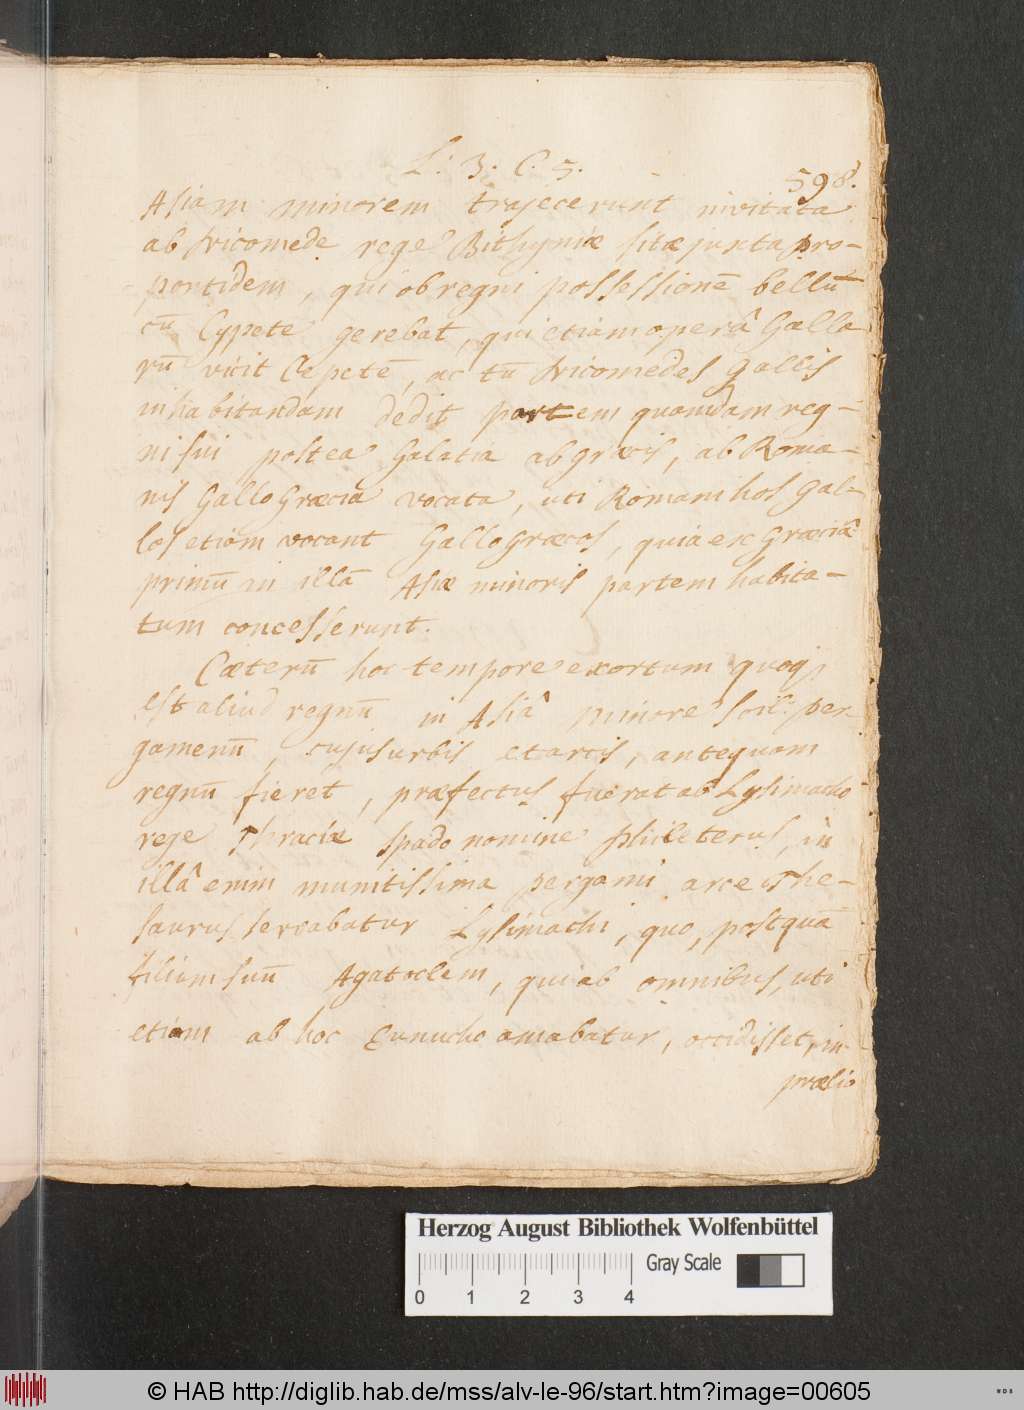 L. 3. C. 5.
598.
Asiam minorem trajecerunt invitata
ab Nicomede rege Bithyniæ sitæ juxta pro-
pontidem, qui ob regni possessionē bellū
cū Cypete gerebat, qui etiam operâ Gallo
rū vicit Cepetē, ac tū Nicomedes Gallis
inhabitandam dedit partem quandam reg-
ni sui postea Galatia ab græcis, ab Roma-
nis Gallo Græcia vocata, uti Romani hos Gal-
los etiam vocant Gallo Græcos, quia ex Græciâ
primū in illā Asiæ minoris partem habita-
tum concesserunt.
Cæterū hoc tempore exortum quoq;
est aliud regnū in Asiâ minore scil: per-
gamenū, cujus urbis et arcis, antequam
regnū fieret, præfectus fuerat ab Lysimacho
rege Thraciæ spado nomine Phileterus, in
illâ enim munitissima pergami arce The-
saurus servabatur Lysimachi, quo, postquā
filium suū Agatoclem, qui ab omnibus, uti
etiam ab hoc Eunucho amabatur, occidisset, in
prælio
Herzog August Bibliothek Wolfenbüttel
0 1 2 3 4
Gray Scale
© HAB http://diglib.hab.de/mss/alv-le-96/start.htm?image=00605